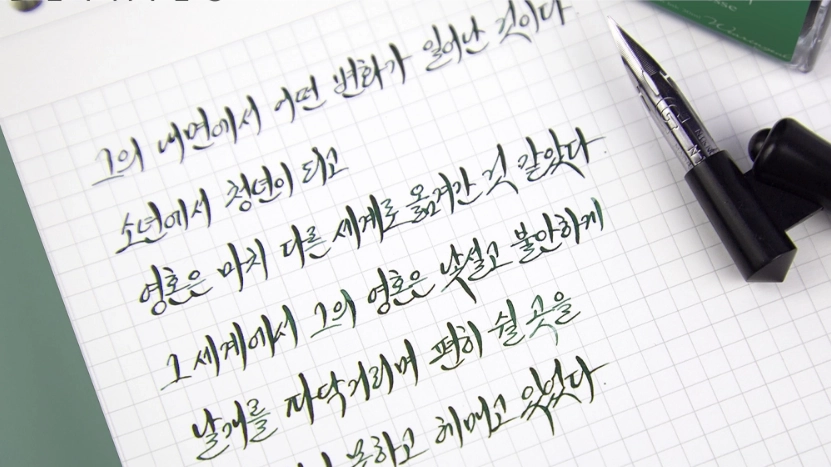 그의 내면에서 어떤 변화가 일어난 것이다.
소년에서 청년이 되고
영혼은 마치 다른 세계로 옮겨간 것 같았다.
그 세계에서 그의 영혼은 낯설고 불안하게
날개를 파닥거리며 편히 쉴 곳을
못하고 헤매고 있었다.